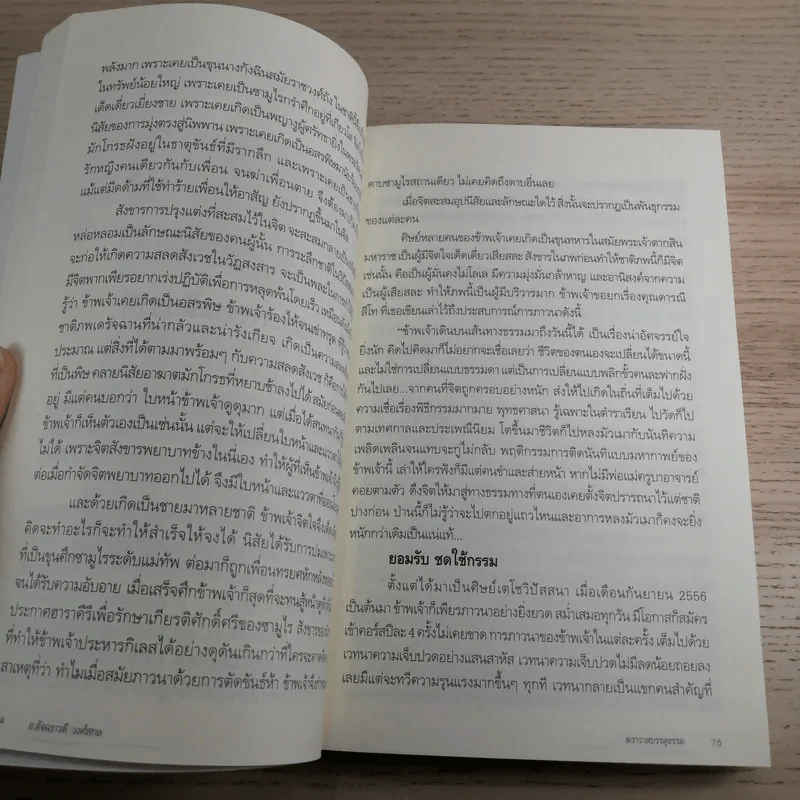 พลังมาก เพราะเคยเป็นขุนนางกังฉินสมัยราชวงศ์ถัง
ในทรัพย์น้อยใหญ่ เพราะเคยเป็นซามูไรกรำศึกอยู่ที่เกียวโต
เด็ดเดี่ยวเยี่ยงชาย เพราะเคยเกิดเป็นพญางูผู้ศรัทธายิ่งใน
นิสัยของการมุ่งตรงสู่นิพพาน เพราะเคยเกิดเป็นอสรพิษ
มักโกรธฝังอยู่ในธาตุขันธ์ที่มีรากลึก และเพราะเคยเป็น
รักหญิงคนเดียวกันกับเพื่อน จนฆ่าเพื่อนตาย จึงต้อง
แม้แต่มีดด้ามที่ใช้ทำร้ายเพื่อนให้อาสัญ ยังปรากฏขึ้นมา
สังขารการปรุงแต่งที่สะสมไว้ในจิต จะสะสมกลายเป็น
หล่อหลอมเป็นลักษณะนิสัยของคนผู้นั้น การระลึกชาติ
จะก่อให้เกิดความสลดสังเวชในวัฏสงสาร จะเป็นพละในการ
มีจิตพากเพียรอยากเร่งปฏิบัติเพื่อการหลุดพ้นโดยเร็ว เหมือน
รู้ว่า ข้าพเจ้าเคยเกิดเป็นอสรพิษ ข้าพเจ้าร้องไห้จนเข่าทรุด
ชาติภพเดรัจฉานที่น่ากลัวและน่ารังเกียจ เกิดเป็นความ
ประมาณ แต่สิ่งที่ได้ตามมาพร้อมๆ กับความสลดสังเวช
ที่เป็นพิษ คลายนิสัยอาฆาตมักโกรธที่หยาบช้าลงไปได้
อยู่ มีแต่คนบอกว่า ใบหน้าข้าพเจ้าดูดุมาก แต่เมื่อได้
ข้าพเจ้าก็เห็นตัวเองเป็นเช่นนั้น แต่จะให้เปลี่ยนใบหน้าและแวว
ไม่ได้ เพราะจิตสังขารพยาบาทข้างในนี่เอง ทำให้ผู้ที่เห็น
ต่อเมื่อกำจัดจิตพยาบาทออกไปได้ จึงมีใบหน้าและแววตาที่
และด้วยเกิดเป็นชายมาหลายชาติ ข้าพเจ้าจิตใจจึง
คิดจะทำอะไรก็จะทำให้สำเร็จให้จงได้ นิสัยได้รับการบ่มเพาะ
ที่เป็นขุนศึกซามูไรระดับแม่ทัพ ต่อมาก็ถูกเพื่อนทรยศหักหลัง
จนได้รับความอับอาย เมื่อเสร็จศึกข้าพเจ้าก็สุดที่จะทนสู้หน้า
ประกาศฮาราคีรีเพื่อรักษาเกียรติศักดิ์ศรีของซามูไร สังขาร
ที่ทำให้ข้าพเจ้าประหารกิเลสได้อย่างดุดันเกินกว่าที่ใครจะ
สาเหตุที่ว่า ทำไมเมื่อสมัยภาวนาด้วยการตัดขันธ์ห้า ข้าพเจ้าจึง
4 อ.อัจฉราวดี วงศ์สกล
ดาบซามูไรสถานเดียว ไม่เคยคิดถึงดาบอื่นเลย
เมื่อจิตสะสมอุปนิสัยและลักษณะใดไว้ สิ่งนั้นจะปรากฏเป็นพันธุกรรม
ของแต่ละคน
ศิษย์หลายคนของข้าพเจ้าเคยเกิดเป็นขุนทหารในสมัยพระเจ้าตากสิน
มหาราช เป็นผู้มีจิตใจเด็ดเดี่ยวเสียสละ สังขารในภพก่อนทำให้ชาติภพนี้ก็มีจิต
เช่นนั้น คือเป็นผู้มั่นคงไม่โลเล มีความมุ่งมั่นกล้าหาญ และอานิสงค์จากความ
เป็นผู้เสียสละ ทำให้ภพนี้เป็นผู้มีบริวารมาก ข้าพเจ้าขอยกเรื่องคุณดารณี
สีโท ที่เธอเขียนเล่าไว้ถึงประสบการณ์การภาวนาดังนี้
“ข้าพเจ้าเดินบนเส้นทางธรรมมาถึงวันนี้ได้ เป็นเรื่องน่าอัศจรรย์ใจ
ยิ่งนัก คิดไปคิดมาก็ไม่อยากจะเชื่อเลยว่า ชีวิตของตนเองจะเปลี่ยนได้ขนาดนี้
และไม่ใช่การเปลี่ยนแบบธรรมดา แต่เป็นการเปลี่ยนแบบพลิกขั้วคนละฟากฝั่ง
กันไปเลย...จากคนที่จิตถูกครอบอย่างหนัก ส่งให้ไปเกิดในถิ่นที่เต็มไปด้วย
ความเชื่อเรื่องพิธีกรรมมากมาย พุทธศาสนา รู้เฉพาะในตำราเรียน ไปวัดก็ไป
ตามเทศกาลและประเพณีนิยม โตขึ้นมาชีวิตก็ไปหลงมัวเมากับนันทิความ
เพลิดเพลินจนแทบจะกู่ไม่กลับ พฤติกรรมการติดนันทิแบบมหากาพย์ของ
ข้าพเจ้านี้ เล่าให้ใครฟังก็มีแต่คนขำและส่ายหน้า หากไม่มีพ่อแม่ครูบาอาจารย์
คอยตามตัว ดึงจิตให้มาสู่ทางธรรมทางที่ตนเองเคยตั้งจิตปรารถนาไว้แต่ชาติ
ปางก่อน ป่านนี้ก็ไม่รู้ว่าจะไปตกอยู่แถวไหนและอาการหลงมัวเมาก็คงจะยิ่ง
หนักกว่าเดิมเป็นแน่แท้...
ยอมรับ ชดใช้กรรม
ตั้งแต่ได้มาเป็นศิษย์เตโชวิปัสสนา เมื่อเดือนกันยายน 2556
เป็นต้นมา ข้าพเจ้าก็เพียรภาวนาอย่างยิ่งยวด สม่ำเสมอทุกวัน มีโอกาสก็สมัคร
เข้าคอร์สปีละ 4 ครั้งไม่เคยขาด การภาวนาของข้าพเจ้าในแต่ละครั้ง เต็มไปด้วย
เวทนาความเจ็บปวดอย่างแสนสาหัส เวทนาความเจ็บปวดไม่มีลดน้อยถอยลง
เลยมีแต่จะทวีความรุนแรงมากขึ้นๆ ทุกที เวทนากลายเป็นแขกคนสำคัญที่
ฆราวาสบรรลุธรรม 75